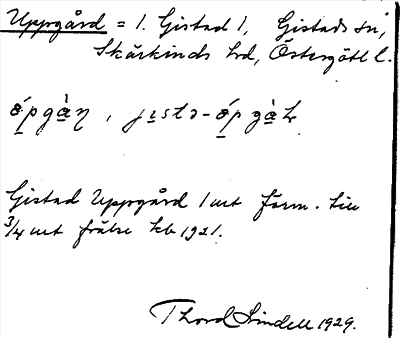 Uppgård = 1. Gistad 1, Gistads sn,
Skärkinds hd, Östergötl l.
ǿpgàn, jɩstə-ǿpgàɫ
Gistad Uppgård 1 mt förm. till
3/4 mt frälse kb 1921.
Thord Lindell 1929.